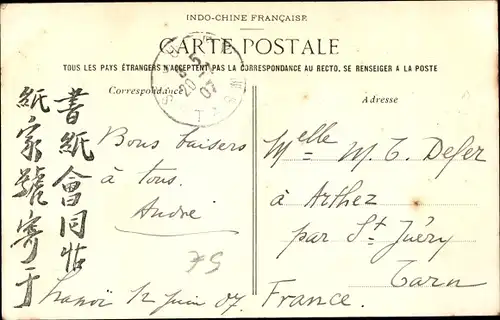 INDO-CHINE FRANÇAISE
CARTE POSTALE
TOUS LES PAYS ÉTRANGERS N'ACCEPTENT PAS LA CORRESPONDANCE AU RECTO, SE RENSEIGNER A LA POSTE
Correspondance
Adresse
書紙會同帖
紙家號寄于
Bons baisers
à tous.
André
75
Hanoï 12 juin 07.
Melle M. T. Defer
à Arthez
par St Juéry
Tarn
France.